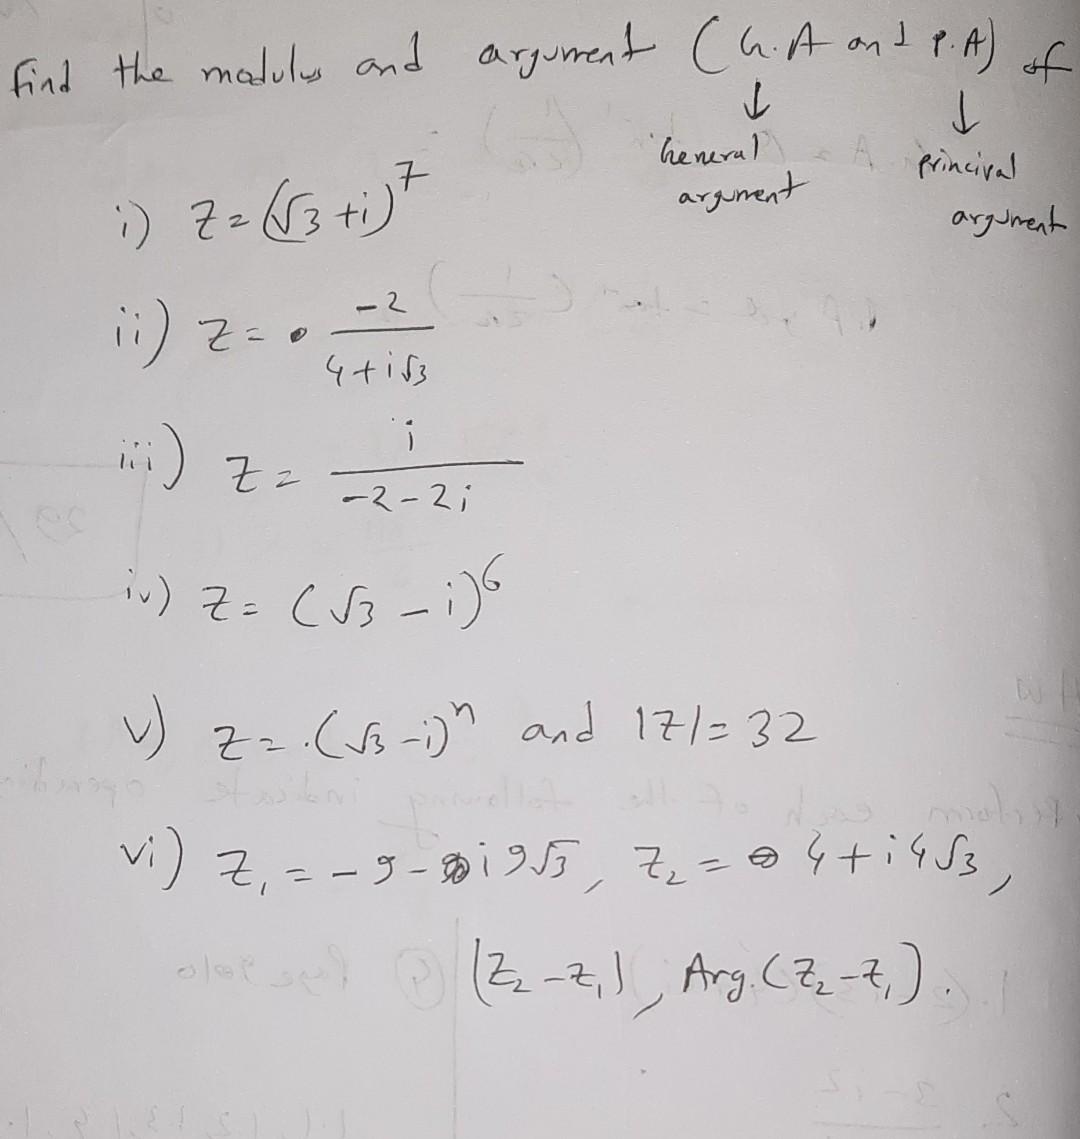 Find the modulus and argument (G.A and P.A) of
↓ ↓
General principal
argument argument
i) z = (√3 + i)^7
ii) z = -2 / (4 + i√3)
iii) z = i / (-2 - 2i)
iv) z = (√3 - i)^6
v) z = (√3 - i)^n and |z| = 32
vi) z₁ = -9 - i9√3, z₂ = 4 + i4√3,
|z₂ - z₁|, Arg.(z₂ - z₁).